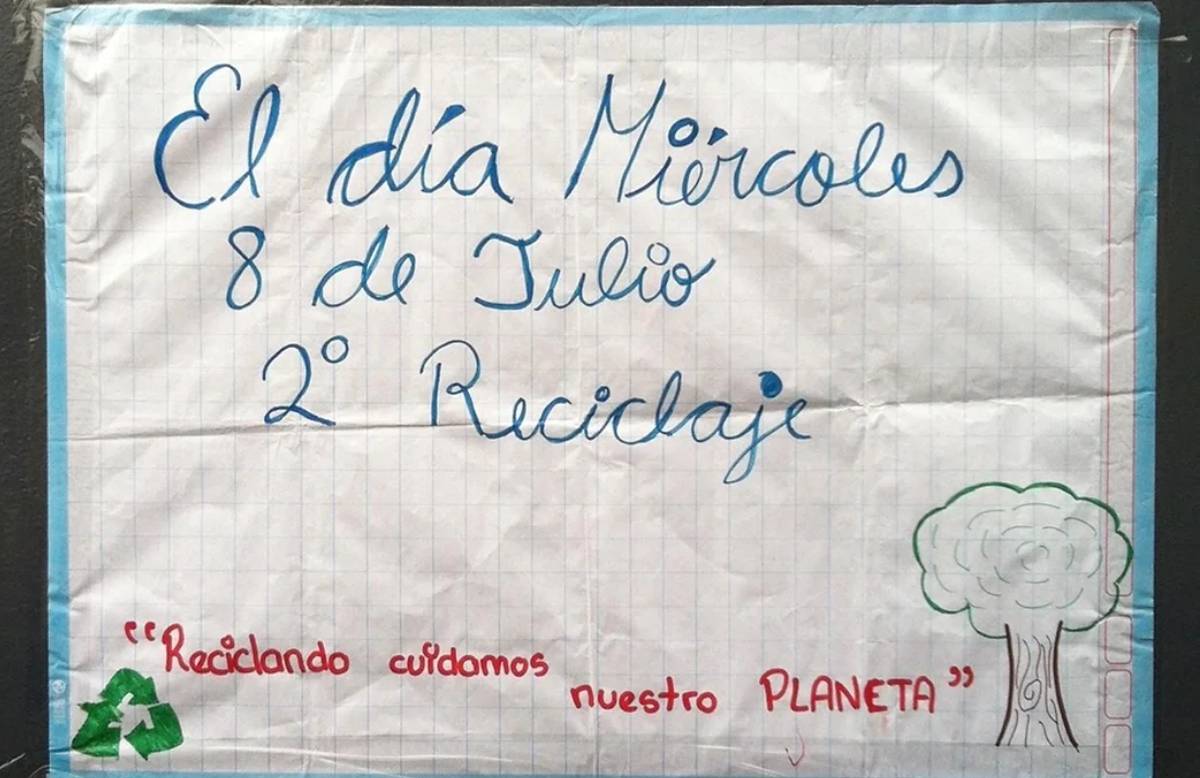 El día Miércoles
8 de Julio
2° Reciclaje
“Reciclando cuidamos
nuestro PLANETA”